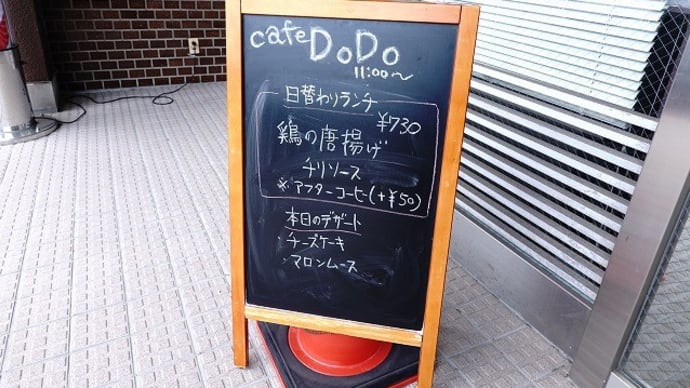 cafe DoDo
11:00〜
日替わりランチ
¥730
鶏の唐揚げ
チリソース
※アフターコーヒー(+¥50)
本日のデザート
・チーズケーキ
・マロンムース